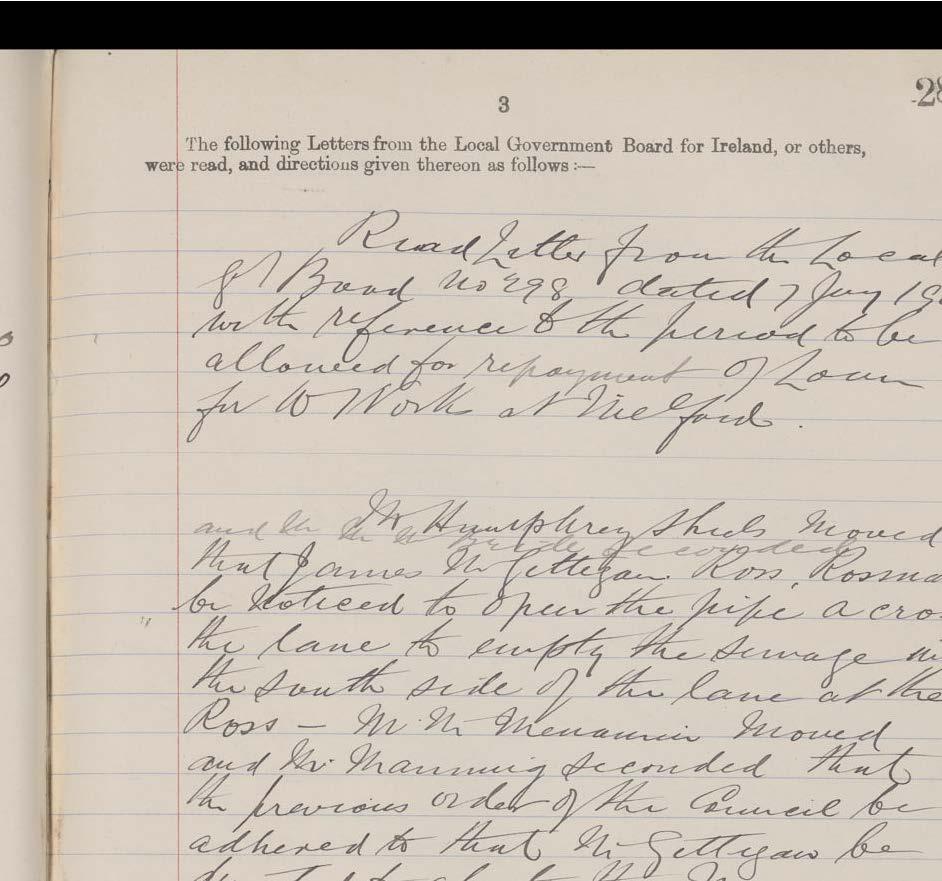 3
28
The following Letters from the Local Government Board for Ireland, or others,
were read, and directions given thereon as follows :—
Read Letter from the Local
Board No 298 dated 7 Jany 19
with reference to the period to be
allowed for repayment of Loan
for W Work at Milford.
Mr Humphrey Shiels Moved
and Mr Mc Bride seconded
that James McGettigan Ross, Rossna
be Noticed to open the pipe acro
the lane to empty the sewage
the south side of the lane at the
Ross — Mr Mc Menamin Moved
and Mr. Manning seconded that
the previous order of the Council be
adhered to that McGettigan be